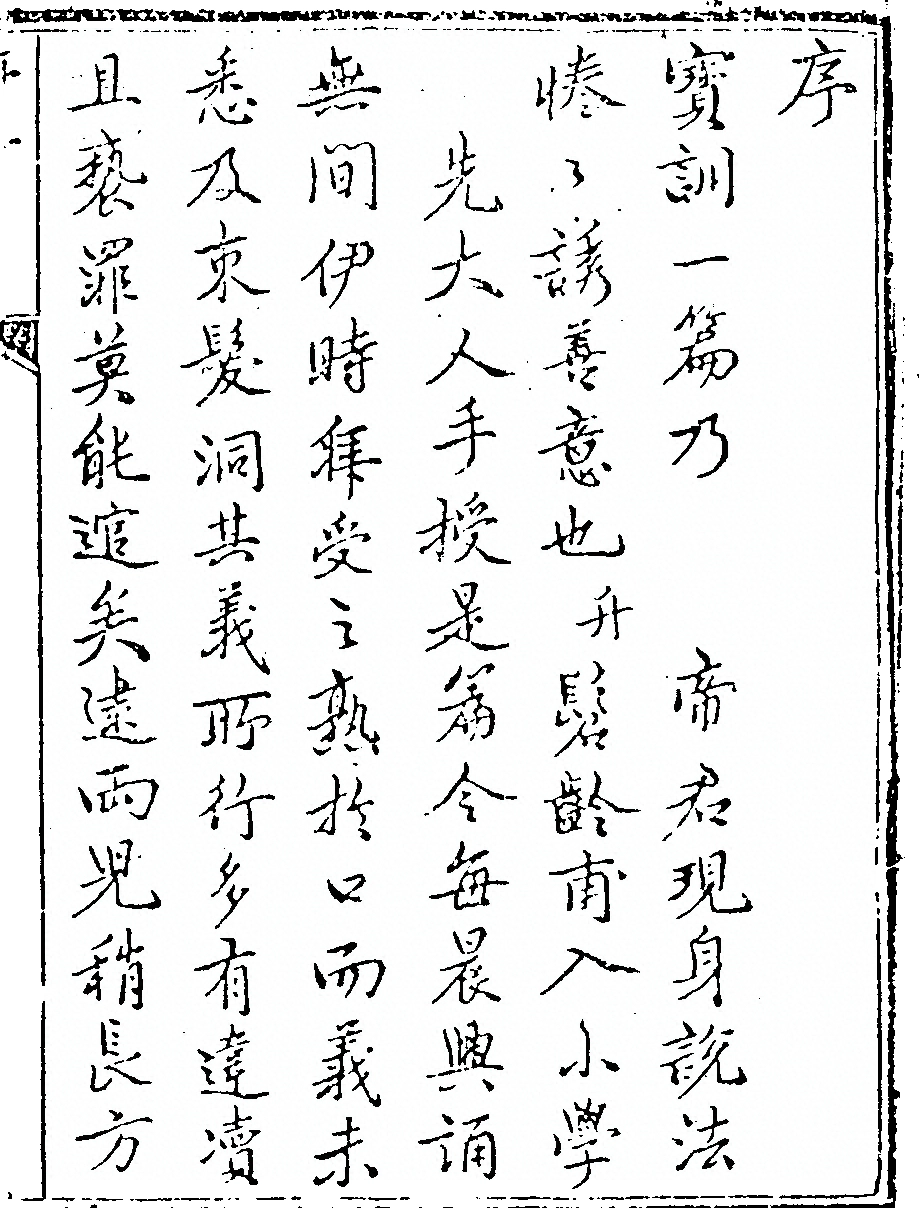 序
寶訓一篇乃　帝君現身說法
惓々誘善意也升髫齡甫入小學
先大人手授是篇令每晨興誦
無間伊時拜受之熟於口而義未
悉及束髮洞其義所行多有違瀆
且褻罪莫能逭矣逮兩兒稍長方